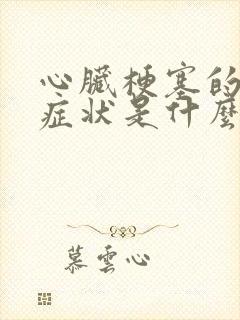 心臟梗塞的
症状是什麽
慕雲心